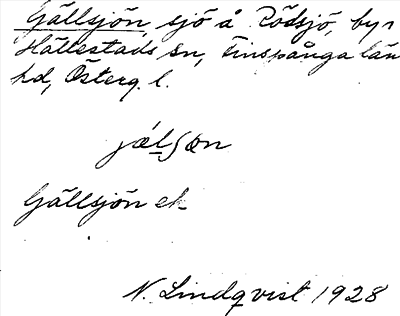 Gällsjön, sjö å Rödsjö, by,
Hällestads sn, Finspånga län
hd, Österg. l.
jælʃøn
Gällsjön ek
N. Lindqvist 1928